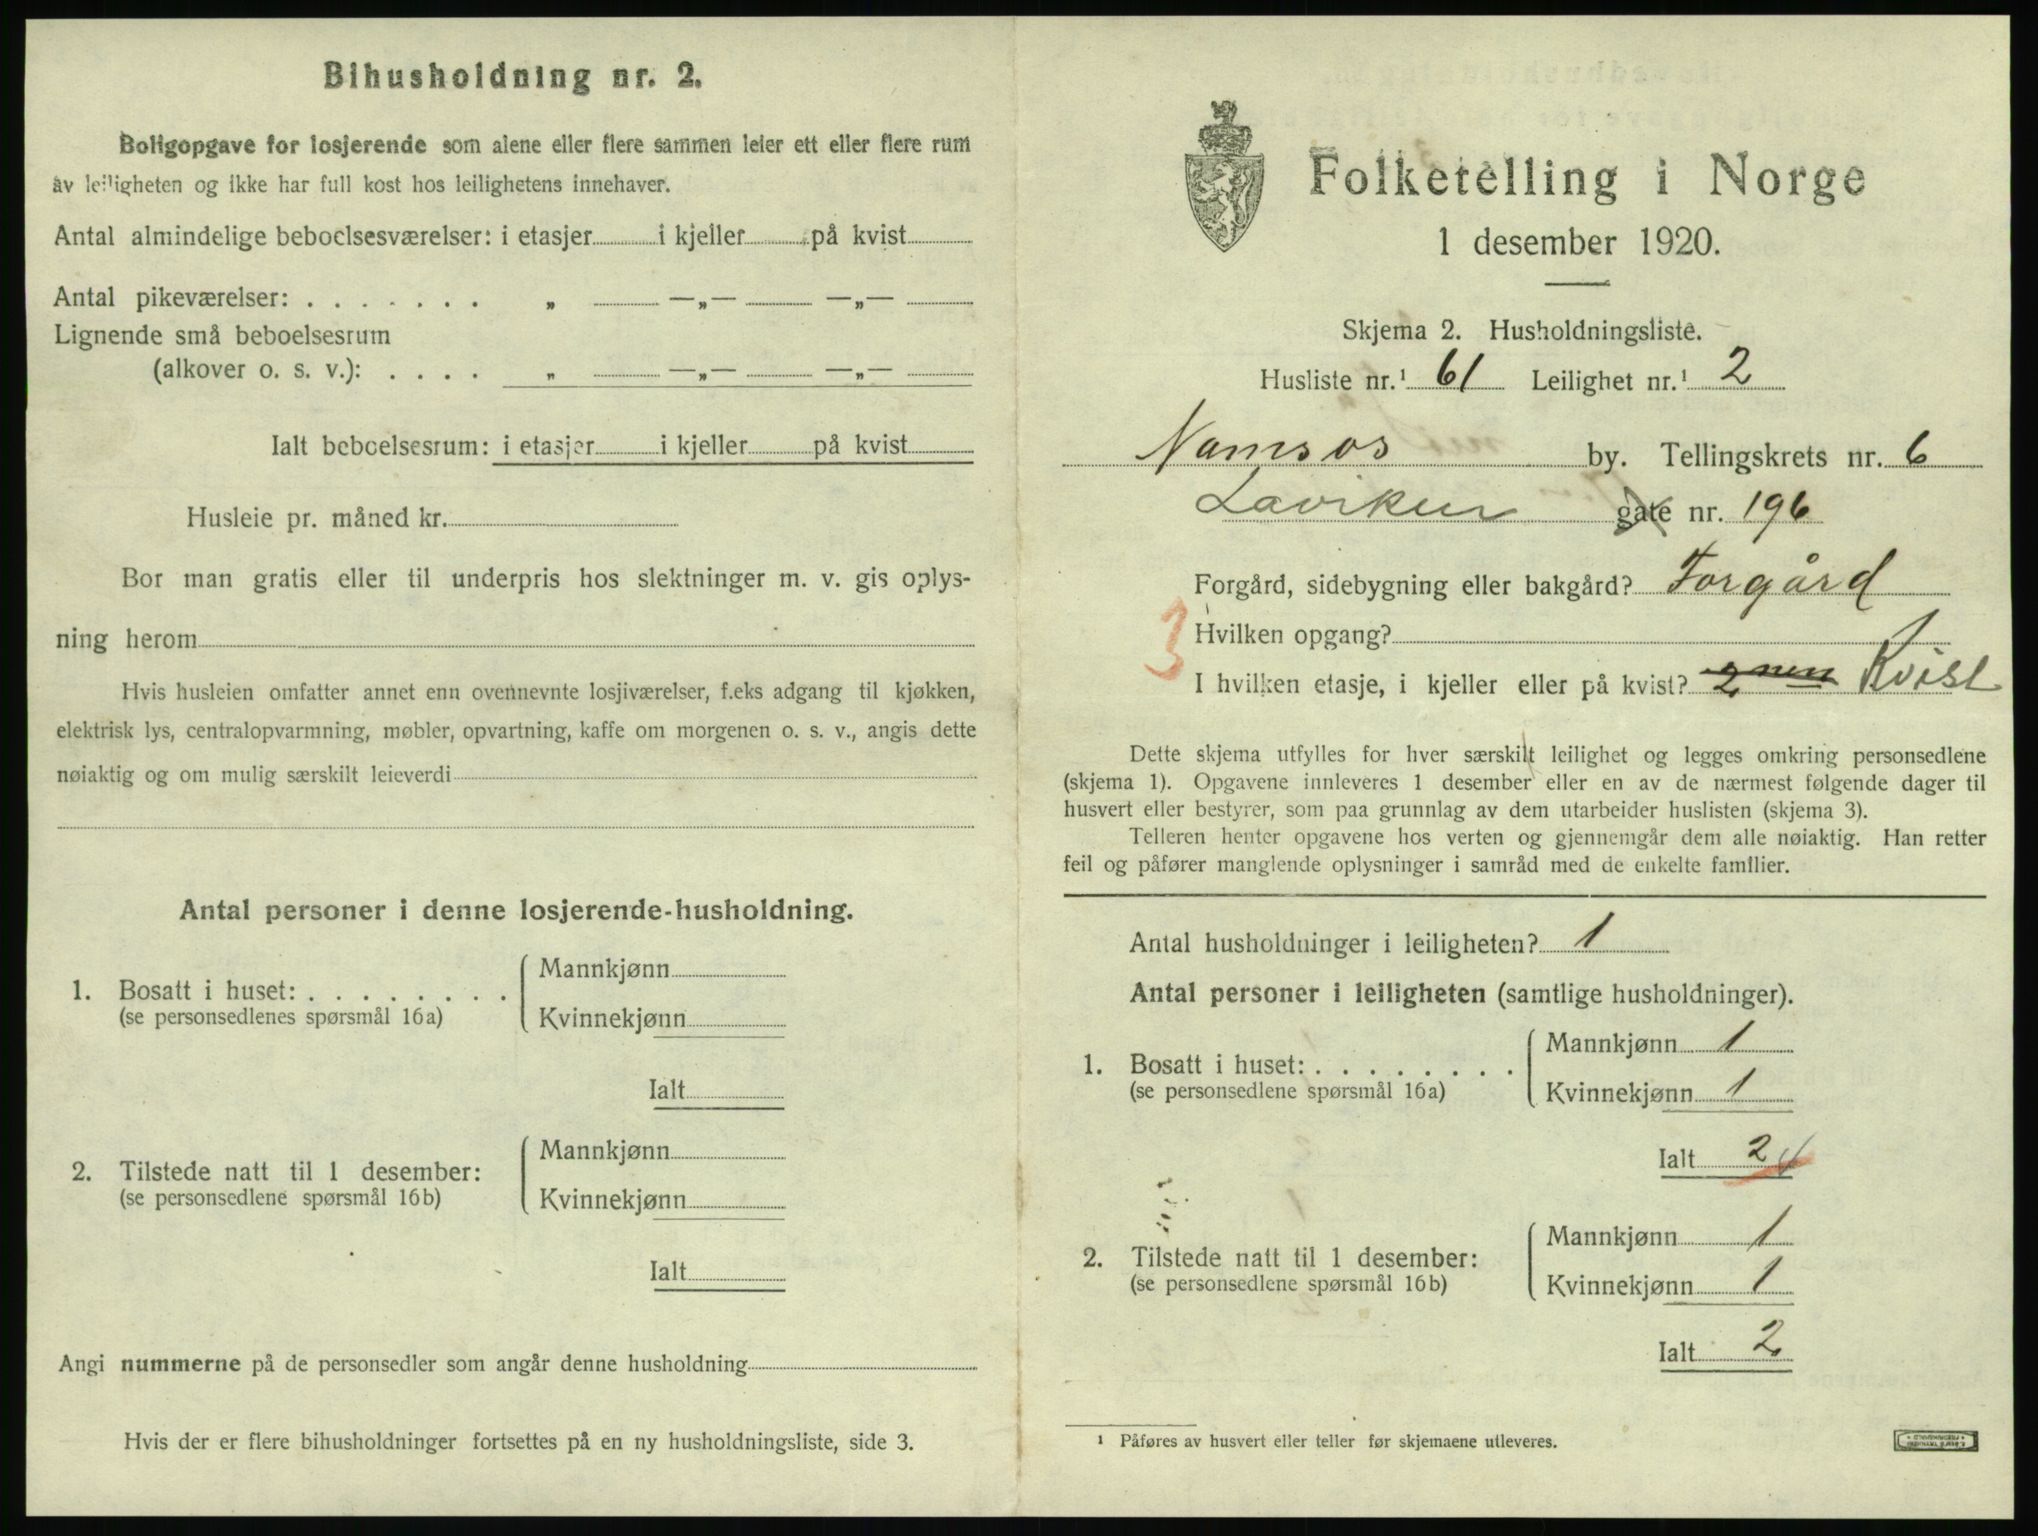 Bihusholdning nr. 2.
Boligopgave for losjerende som alene eller flere sammen leier ett eller flere rum
av leiligheten og ikke har full kost hos leilighetens innehaver.
Antal almindelige beboelsesværelser: i etasjer i kjeller på kvist
Antal pikeværelser: . . . . . . . „ —„— —„—
Lignende små beboelsesrum
(alkover o. s. v.): . . . . „ —„— —„—
Ialt beboelsesrum: i etasjer i kjeller på kvist
Husleie pr. måned kr.
Bor man gratis eller til underpris hos slektninger m. v. gis oplys-
ning herom
Hvis husleien omfatter annet enn ovennevnte losjiværelser, f.eks adgang til kjøkken,
elektrisk lys, centralopvarmning, møbler, opvartning, kaffe om morgenen o. s. v., angis dette
nøiaktig og om mulig særskilt leieverdi
Antal personer i denne losjerende-husholdning.
1. Bosatt i huset: . . . . . . . .
(se personsedlenes spørsmål 16a)
Mannkjønn
Kvinnekjønn
Ialt
2. Tilstede natt til 1 desember:
(se personsedlene spørsmål 16b)
Mannkjønn
Kvinnekjønn
Ialt
Angi nummerne på de personsedler som angår denne husholdning
Hvis der er flere bihusholdninger fortsettes på en ny husholdningsliste, side 3.
Folketelling i Norge
1 desember 1920.
Skjema 2. Husholdningsliste.
Husliste nr.¹ 61 Leilighet nr.¹ 2
Namsos by. Tellingskrets nr. 6
Lavikur gate nr. 196
Forgård, sidebygning eller bakgård? Forgård
3 Hvilken opgang?
I hvilken etasje, i kjeller eller på kvist? 2 nen Kvist
Dette skjema utfylles for hver særskilt leilighet og legges omkring personsedlene
(skjema 1). Opgavene innleveres 1 desember eller en av de nærmest følgende dager til
husvert eller bestyrer, som paa grunnlag av dem utarbeider huslisten (skjema 3).
Telleren henter opgavene hos verten og gjennemgår dem alle nøiaktig. Han retter
feil og påfører manglende oplysninger i samråd med de enkelte familier.
Antal husholdninger i leiligheten? 1
Antal personer i leiligheten (samtlige husholdninger).
1. Bosatt i huset: . . . . . . . .
(se personsedlene spørsmål 16a)
Mannkjønn 1
Kvinnekjønn 1
Ialt 2
2. Tilstede natt til 1 desember:
(se personsedlene spørsmål 16b)
Mannkjønn 1
Kvinnekjønn 1
Ialt 2
¹ Påføres av husvert eller teller før skjemaene utleveres.